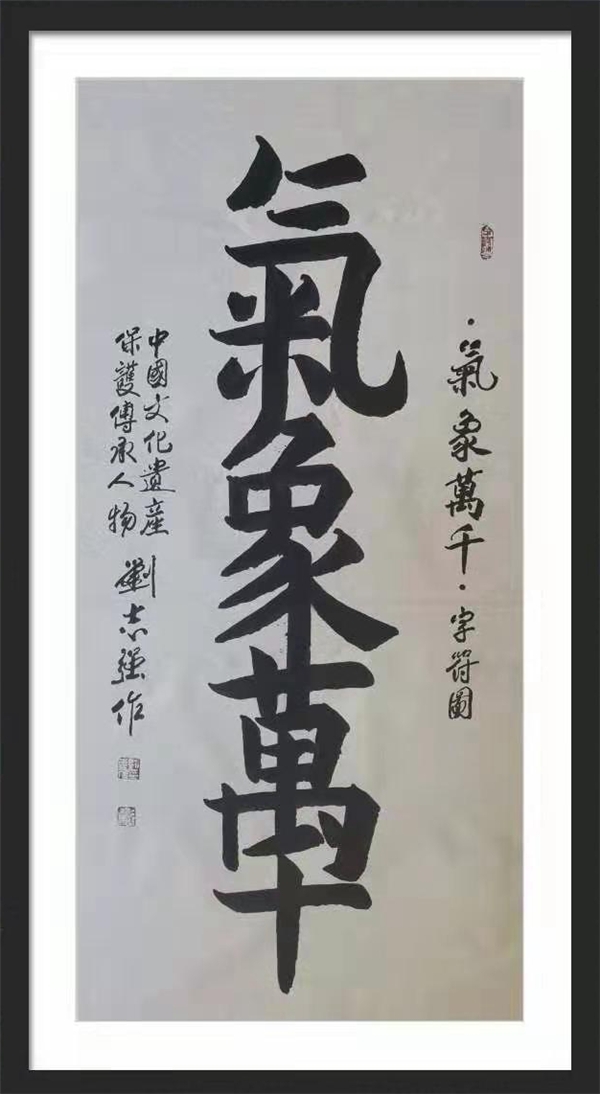 ·氣象萬千·字符圖
氣象萬千
中國文化遺産
保護傳承人物
劉志强作